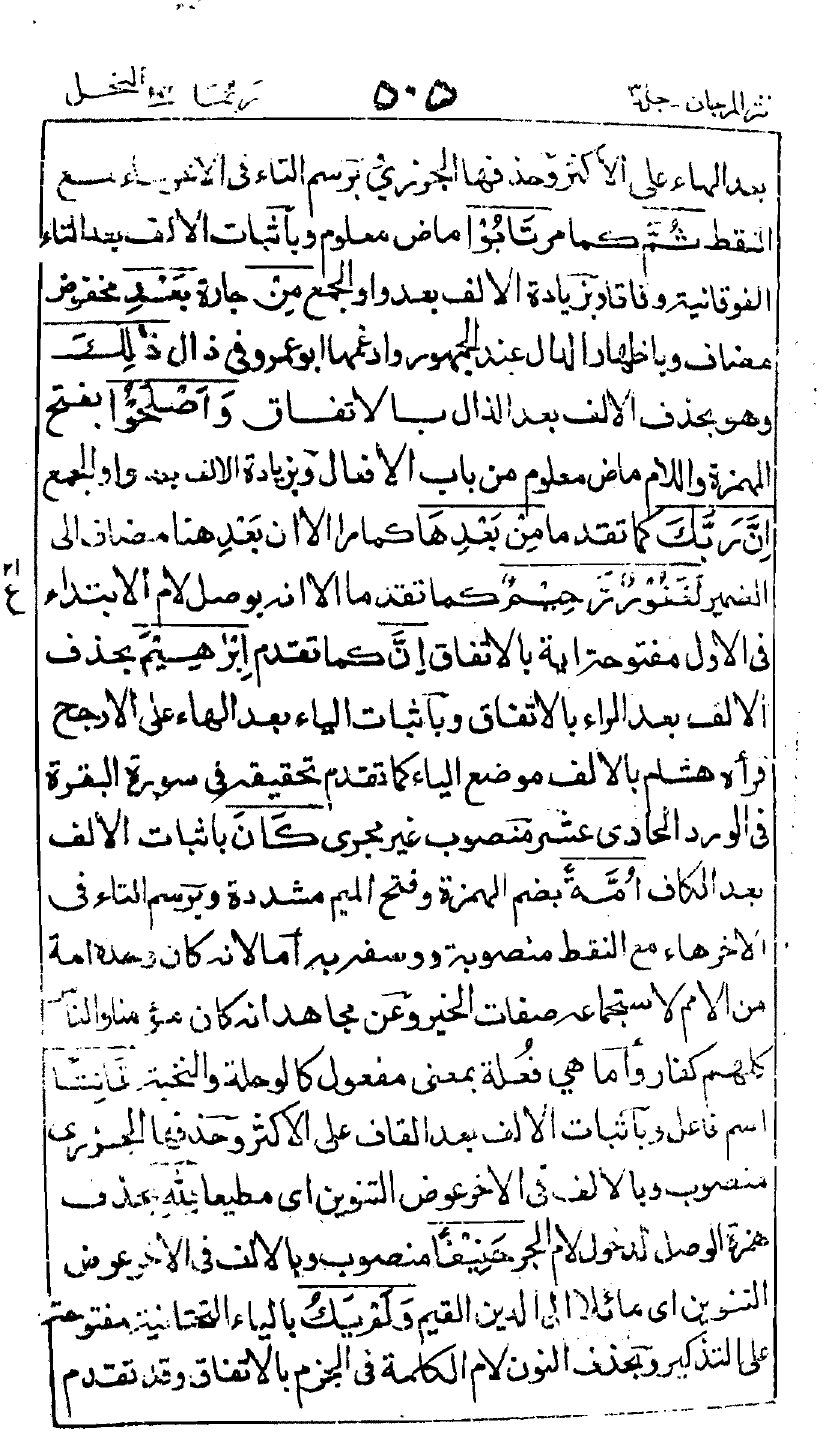 نثر المرجان - جلد ٣ ٥٠٥ ربما النحل
بعد الهاء على الأكثر وحذفها الجوزري وبرسم التاء فى الاخر هاء مع
النقط ثُمَّ كما مر تَابُوْا ماض معلوم وبأثبات الالف بعد التاء
الفوقانية وفاقا وبزيادة الالف بعد واو الجمع مِنْ جارة بَعْدِ مخفوض
مضاف وباظهار الدال عند الجمهور وادغمها ابو عمرو فى ذال ذٰلِكَ
وهو بحذف الالف بعد الذال بالاتفاق وَاَصْلَحُوْا بفتح
الهمزة واللام ماض معلوم من باب الافعال وبزيادة الالف بعد واو الجمع
اِنَّ رَبَّكَ كما تقدما مِنْ بَعْدِهَا كما مرا الا ان بَعْدِ هنا مضاف الى
الضمير لَغَفُوْرٌ رَّحِيْمٌ كما تقدما الا انه بوصل لام الابتداء
٢١
ع
فى الاول مفتوحة رابية بالاتفاق اِنَّ كما تقدم اِبْرٰهِيْمَ بحذف
الالف بعد الراء بالاتفاق وبأثبات الياء بعد الهاء على الارجح
قرأه هشام بالالف موضع الياء كما تقدم تحقيقه فى سورة البقرة
فى الورد الحادى عشر منصوب غير مجرى كَانَ باثبات الالف
بعد الكاف اُمَّةً بضم الهمزة وفتح الميم مشددة وبرسم التاء فى
الاخر هاء مع النقط منصوبة ووسفر به أما لانه كان وحده امة
من الامم لاستجماعه صفات الخير وعن مجاهد انه كان مؤمنا والناس
كلهم كفار وأما هي فُعلة بمعنى مفعول كالوحلة والنخبة قَانِتًا
اسم فاعل وبأثبات الالف بعد القاف على الاكثر وحذفها الجزرى
منصوب وبالالف فى الاخر عوض التنوين اى مطيعا لِلّٰهِ بحذف
همزة الوصل لدخول لام الجر حَنِيْفًا منصوب وبالالف فى الاخر عوض
التنوين اى مائلا الى الدين القيم وَلَمْ يَكُ بالياء التحتانية مفتوحة
على التذكير وبحذف النون لام الكلمة فى الجزم بالاتفاق وقد تقدم